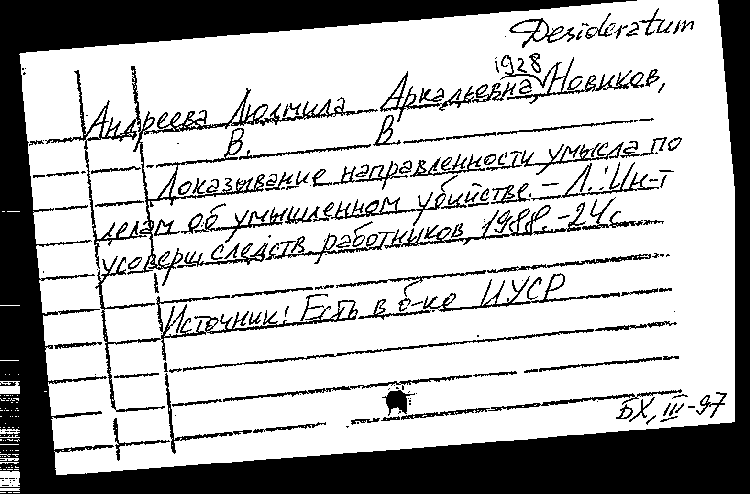 Desideratum
1928
Андреева Людмила Аркадьевна, Новиков,
В. В.
Доказывание направленности умысла по
делам об умышленном убийстве. – Л.: Ин-т
усоверш. следств. работников, 1988. – 24 с.
Источник: Есть в б-ке ИУСР
БХ, III-97